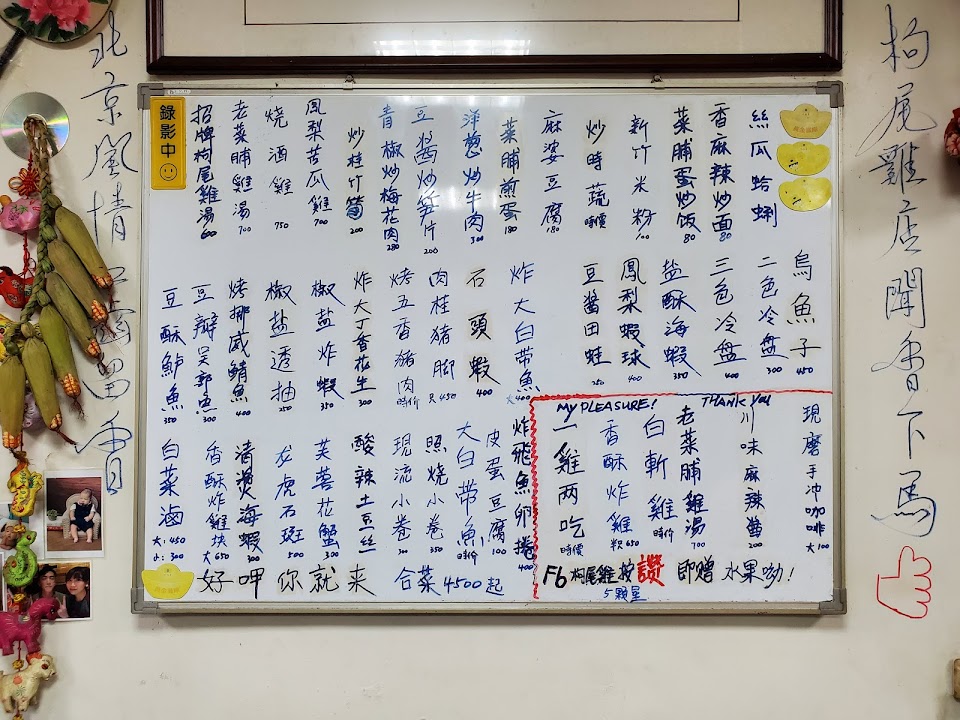 枸尾雞店聞香下馬
絲瓜蛤蜊
香麻辣炒面 80
菜脯蛋炒饭 80
新竹米粉 100
炒時蔬 時價
麻婆豆腐 180
菜脯煎蛋 180
洋蔥炒牛肉 300
豆醬炒笋片 200
青椒炒梅花肉 280
炒桂竹筍 200
鳳梨苦瓜雞 700
燒酒雞 750
老菜脯雞湯 700
招牌枸尾雞湯 600
錄影中
烏魚子 450
二色冷盘 300
三色冷盘 400
盐酥海蝦 350
鳳梨蝦球 400
豆醬田蛙 250
炸大白带魚 大400
石頭蝦 400
肉桂猪脚 只450
烤五香猪肉 時价
炸大丁香花生 300
椒盐炸蝦 350
椒盐透抽 250
烤挪威鯖魚 400
豆瓣吴郭魚 300
豆酥鱸魚 350
炸飛魚卵捲 400
皮蛋豆腐 100
大白帶魚 時价
照燒小卷 350
現流小卷 300
酸辣土豆丝
芙蓉花蟹 300
龙虎石斑 500
清燙海蝦 300
香酥炸雞块 大650
白菜滷 大:450 小:300
好呷你就来 合菜4500起
My PLEASURE! THANK YOU
現磨手冲咖啡 大100
川味麻辣醬 200
老菜脯雞湯 700
白斬雞 時价
香酥炸雞 650
一雞两吃 時價
Fb 枸尾雞按讚 即赠 水果呦!
5顆星
北京風情